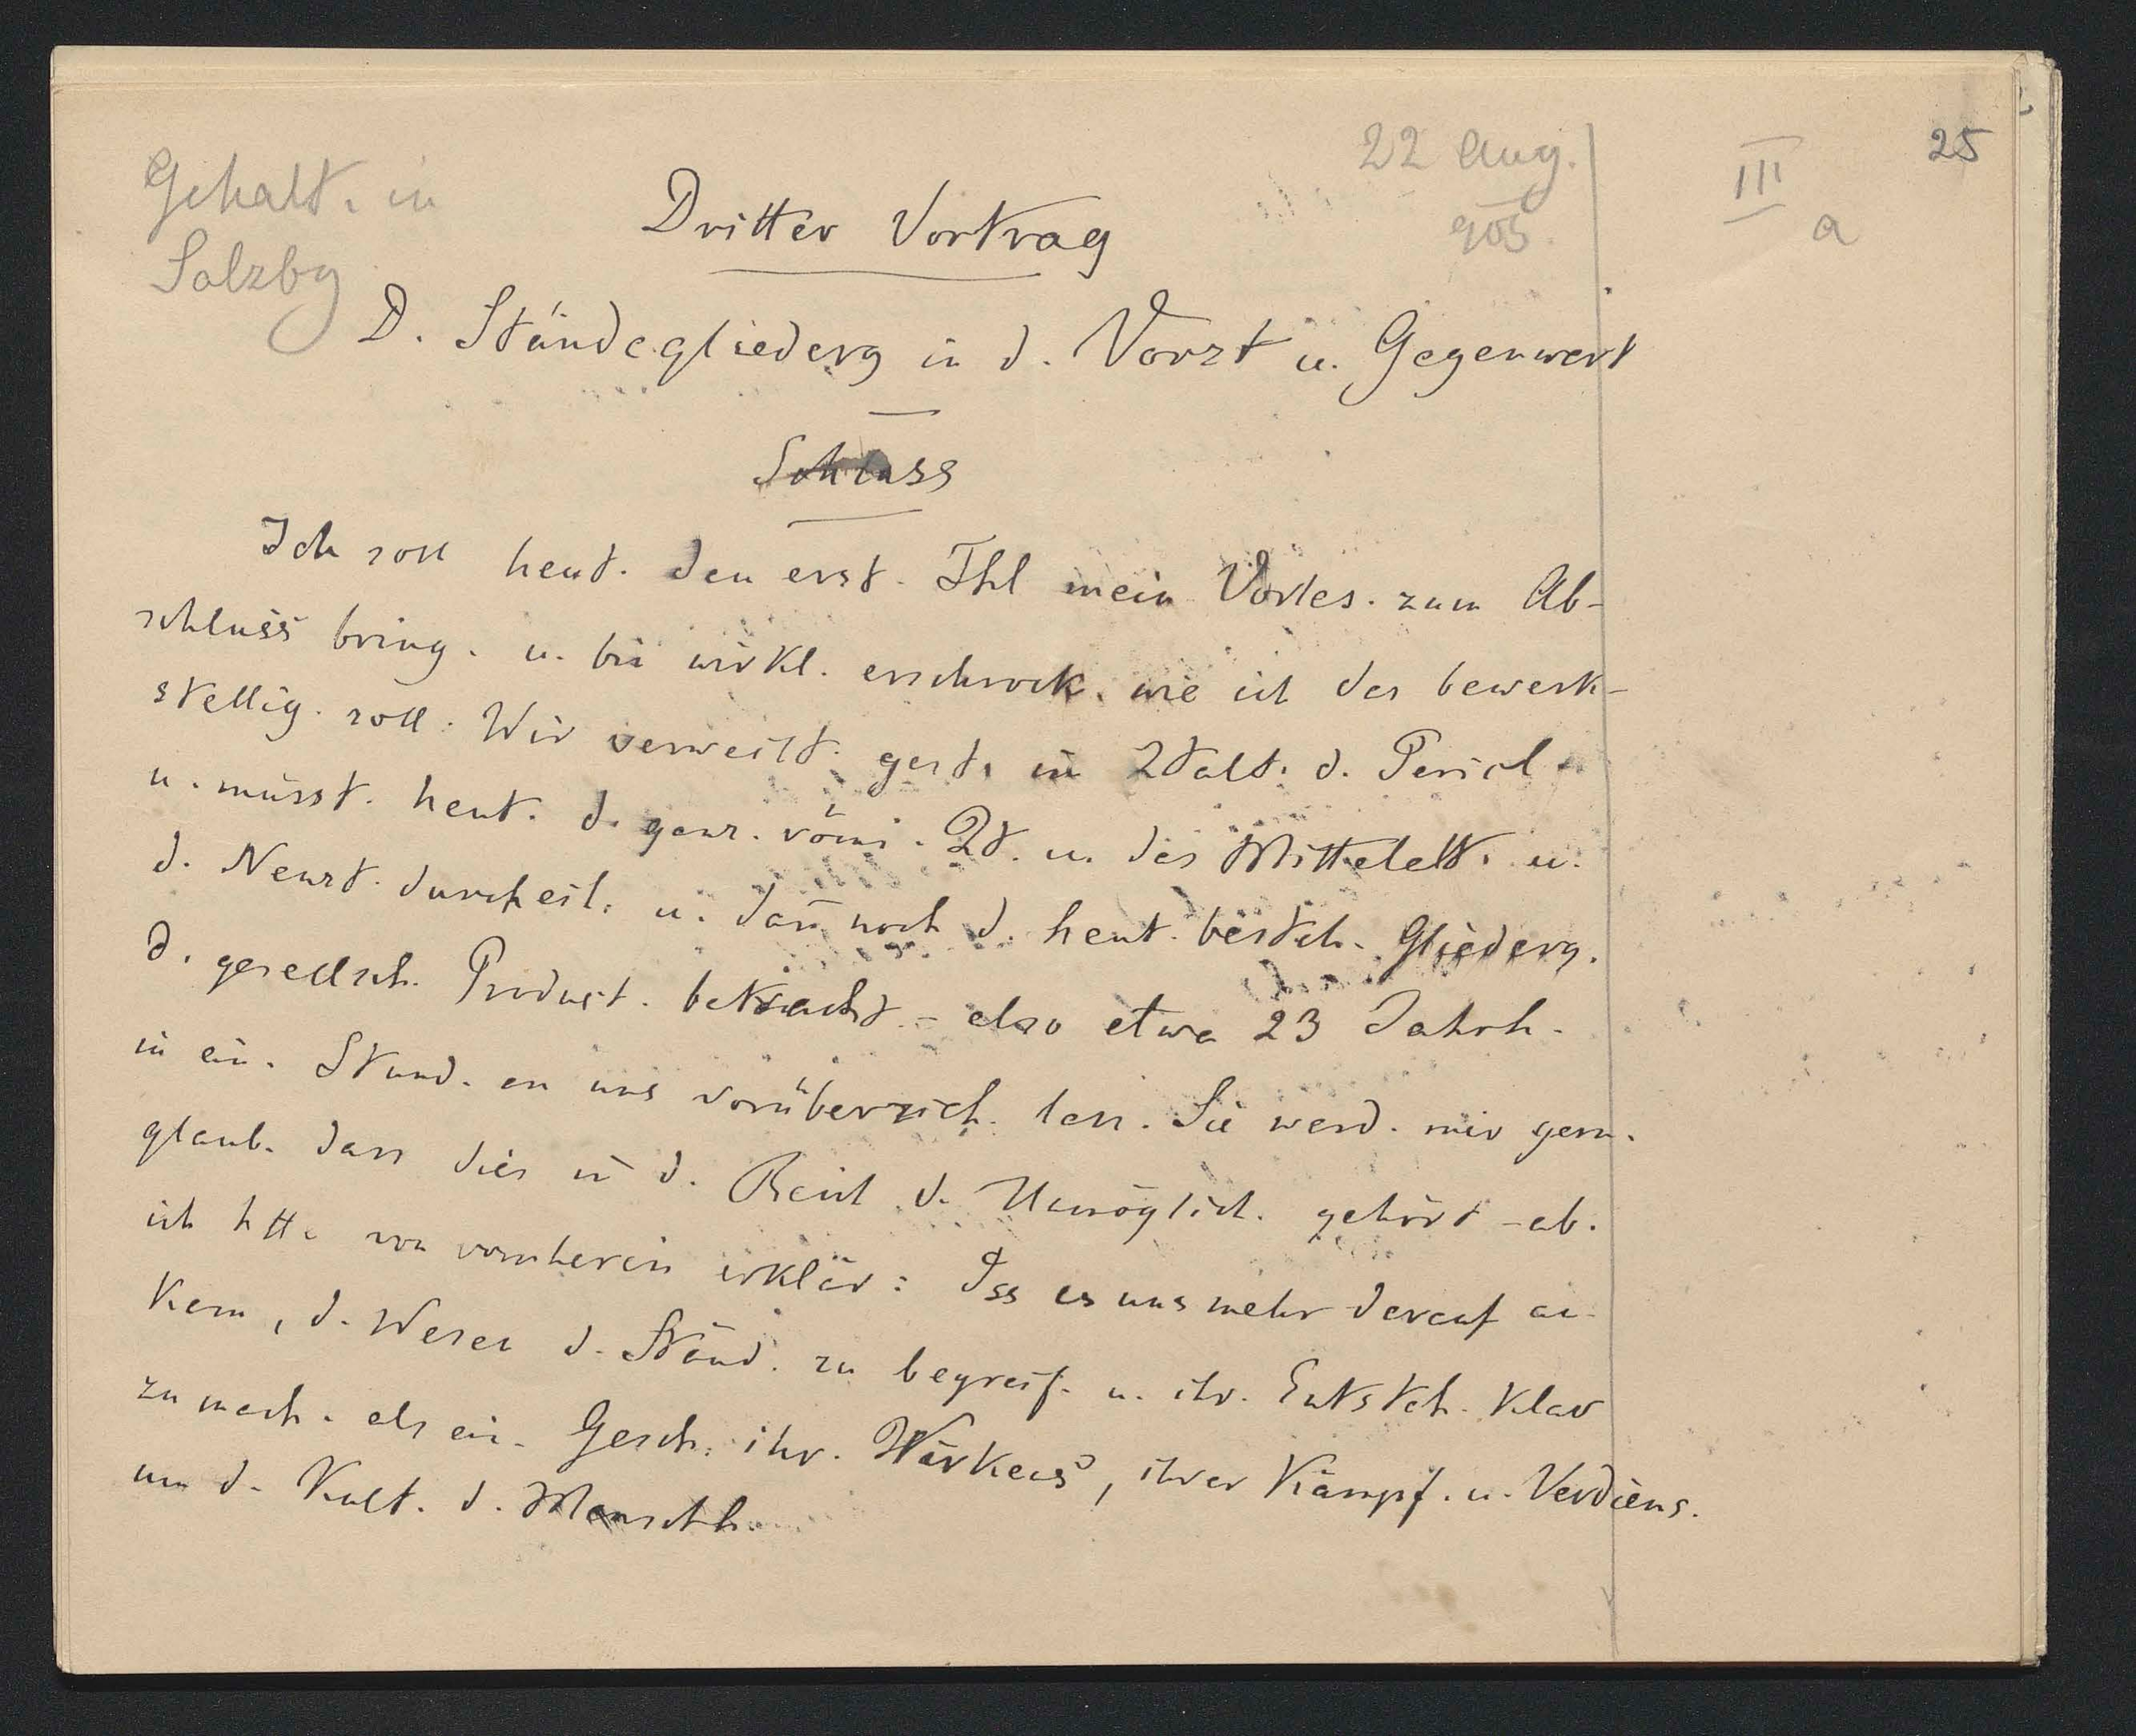 22 Aug.
905.
III
a
25
Gehalt. in
Salzbg
Dritter Vortrag
D. Ständegliederg in d. Vorzt u. Gegenwart
Schluss
Ich soll heut. den erst. Thl mein Vorles. zum Ab-
schluss bring. u. bin wirkl. erschrock. wie ich das bewerk-
stellig. soll. Wir verweilt. gest. im Ztalt. d. Perikl.
u. müsst. heut. d. ganz. römi. Zt. u. das Mittelalt. u.
d. Neuzt. durcheil. u. dañ noch d. heut. besteh. Gliederg.
d. gesellsch. Product. betracht. – also etwa 23 Jahrh.
in ein. Stund. an uns vorüberzieh. lass. Sie werd. mir gern.
glaub. dass dies in d. Reich d. Unmöglich. gehört – ab.
ich htt. von vornherein erklär: Dss es uns mehr darauf an-
kam, d. Wesen d. Ständ. zu begreif. u. ihr. Entsteh. klar
zu mach. als ein. Gesch. ihr. Wirkens, ihrer Kämpf. u. Verdiens.
um d. Kult. d. Menschh.